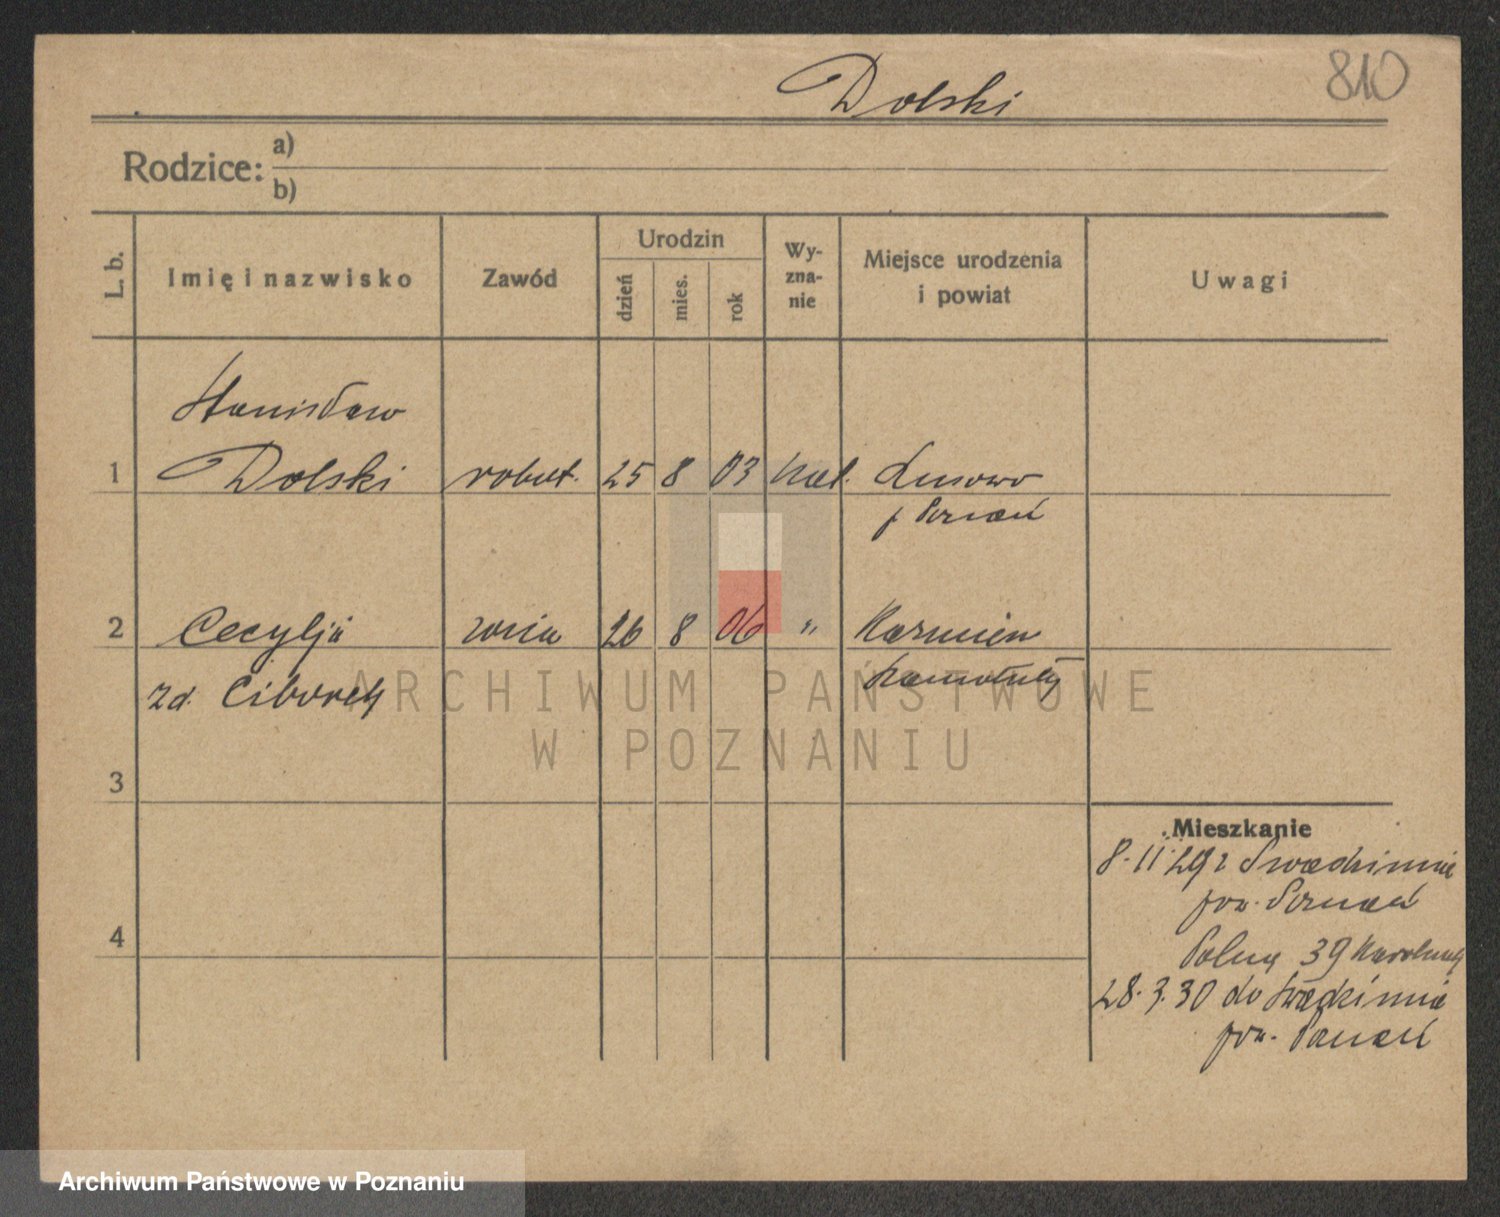 810
Dolski
Rodzice: a)
b)
L. b.
Imię i nazwisko
Zawód
Urodzin
dzień
mies.
rok
Wy-
zna-
nie
Miejsce urodzenia
i powiat
Uwagi
Stanisław
1 Dolski robot. 25 8 03 kat.
p Poznań
2 Cecylja 26 8 06 "
zd.
Szamotuły
3
4
Mieszkanie
8.11.29 z Swadzimia
pow. Poznań
Polna 39
28.3.30 do Swadzimia
pow. Poznań
ARCHIWUM PAŃSTWOWE
W POZNANIU
Archiwum Państwowe w Poznaniu